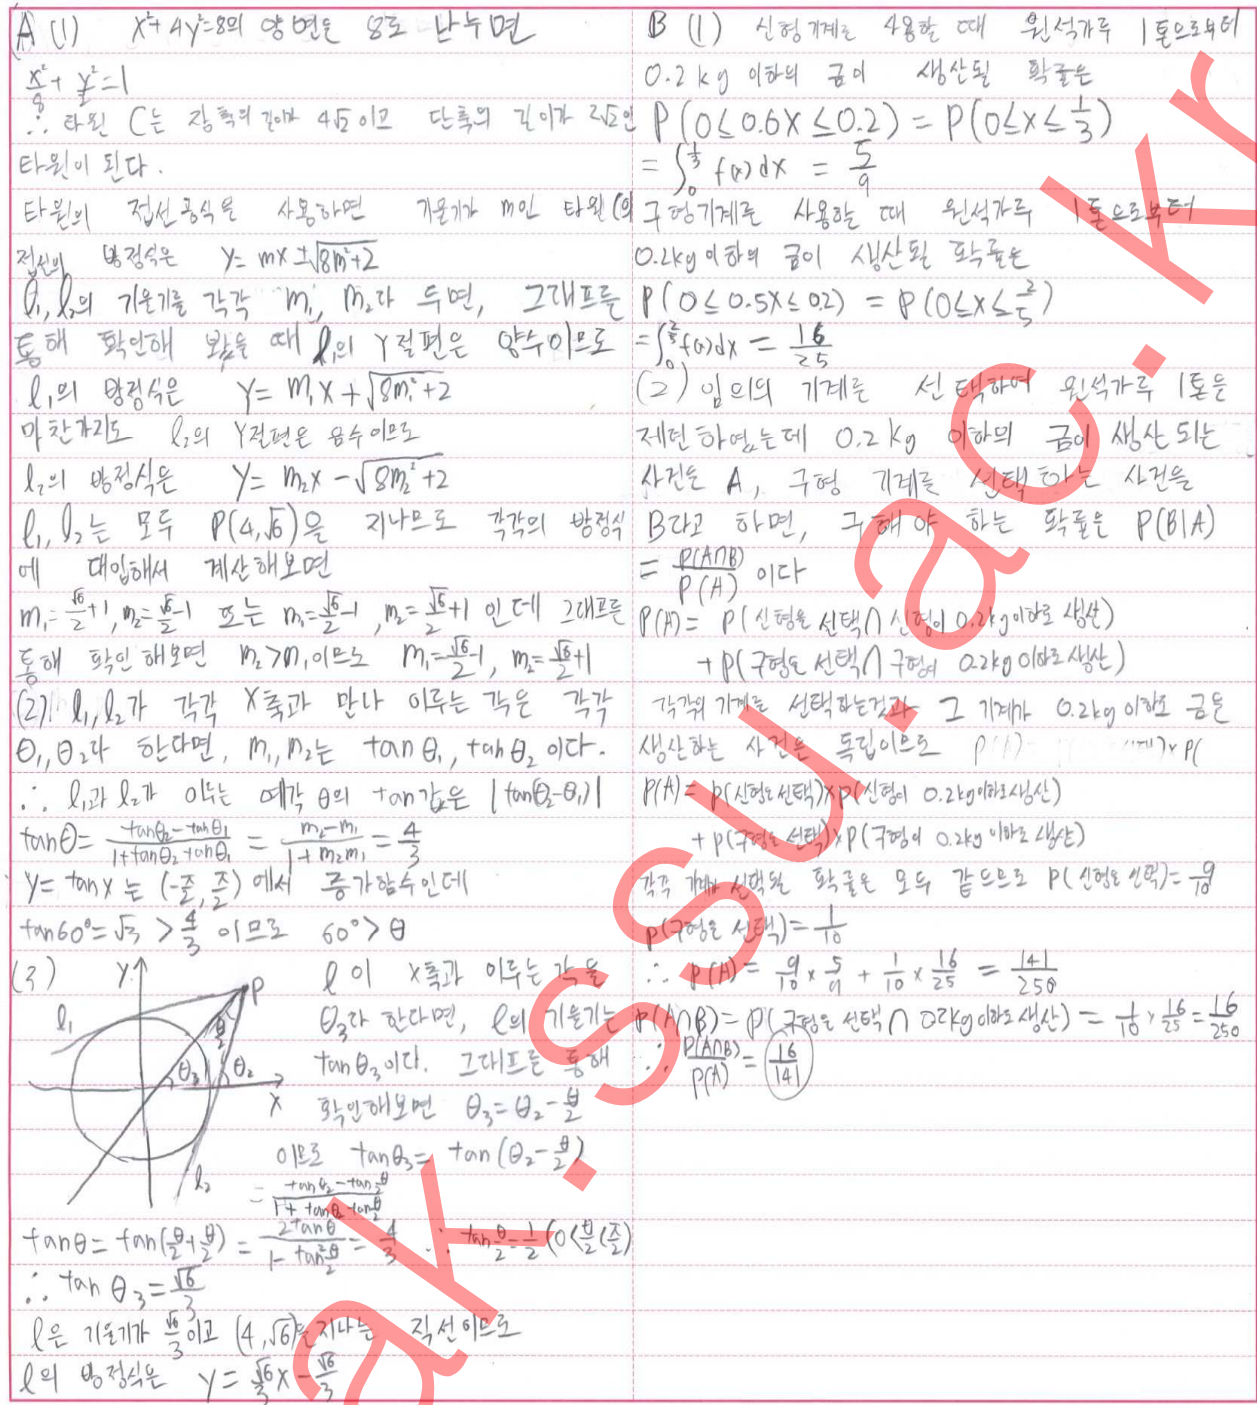 A (1) x²+4y²=8의 양변을 8로 나누면
x²/8 + y²/2 = 1
∴ 타원 C는 장축의 길이가 4√2 이고 단축의 길이가 2√2인
타원이 된다.
타원의 접선공식을 사용하면 기울기가 m인 타원 C의
접선의 방정식은 y= mx ±√(8m²+2)
l₁, l₂의 기울기를 각각 m₁, m₂라 두면, 그래프를
통해 확인해 봤을 때 l₁의 y절편은 양수이므로
l₁의 방정식은 y= m₁x + √(8m₁²+2)
마찬가지로 l₂의 y절편은 음수이므로
l₂의 방정식은 y= m₂x - √(8m₂²+2)
l₁, l₂는 모두 P(4,√6)을 지나므로 각각의 방정식
에 대입해서 계산해보면
m₁=√6/2+1, m₂=√6/2-1 또는 m₁=√6/2-1, m₂=√6/2+1 인데 그래프를
통해 확인해보면 m₂>m₁이므로 m₁=√6/2-1, m₂=√6/2+1
(2) l₁, l₂가 각각 x축과 만나 이루는 각을 각각
θ₁, θ₂라 한다면, m₁, m₂는 tanθ₁, tanθ₂ 이다.
∴ l₁과 l₂가 이루는 예각 θ의 tan값은 |tan(θ₂-θ₁)|
tanθ= (tanθ₂-tanθ₁)/(1+tanθ₂ tanθ₁) = (m₂-m₁)/(1+m₂m₁) = 4/3
y= tanx 는 (-π/2, π/2) 에서 증가함수인데
tan60°=√3 > 4/3 이므로 60°>θ
(3) l 이 x축과 이루는 각을
θ₃라 한다면, l의 기울기는
tanθ₃이다. 그래프를 통해
확인해보면 θ₃=θ₂-θ/2
이므로 tanθ₃= tan(θ₂-θ/2)
= (tanθ₂-tanθ/2)/(1+tanθ₂ tanθ/2)
y
P
l₁
θ/2
θ₃
θ₂
x
l₂
tanθ= tan(θ/2+θ/2) = 2tanθ/(1-tan²θ/2) = 4/3 ∴ tanθ/2=1/2 (0<θ/2<π/2)
∴ tanθ₃=√6/3
l은 기울기가 √6/3이고 (4,√6)을 지나는 직선이므로
l의 방정식은 y= √6/3 x - √6/3
B (1) 신형기계를 사용할 때 원석가루 1톤으로부터
0.2kg 이하의 금이 생산될 확률은
P(0≤0.6X≤0.2) = P(0≤X≤1/3)
= ∫₀^(1/3) f(x)dx = 5/9
구형기계를 사용할 때 원석가루 1톤으로부터
0.2kg 이하의 금이 생산될 확률은
P(0≤0.5X≤0.2) = P(0≤X≤2/5)
=∫₀^(2/5) f(x)dx = 16/25
(2) 임의의 기계를 선택하여 원석가루 1톤을
제련하였는데 0.2kg 이하의 금이 생산되는
사건을 A, 구형 기계를 선택하는 사건을
B라고 하면, 구해야 하는 확률은 P(B|A)
= P(A∩B)/P(A) 이다
P(A)= P(신형을 선택∩신형이 0.2kg이하로 생산)
+P(구형을 선택∩구형이 0.2kg이하로 생산)
각각의 기계를 선택하는것과 그 기계가 0.2kg 이하로 금을
생산하는 사건은 독립이므로
P(A)= P(신형을 선택)×P(신형이 0.2kg이하로 생산)
+P(구형을 선택)×P(구형이 0.2kg 이하로 생산)
각각 기계가 선택될 확률은 모두 같으므로 P(신형을 선택)=9/10
P(구형을 선택)=1/10
∴ P(A)= 9/10 × 5/9 + 1/10 × 16/25 = 141/250
P(A∩B)= P(구형을 선택∩0.2kg이하로 생산) = 1/10 × 16/25 = 16/250
∴ P(A∩B)/P(A) = 16/141
ak.ssu.ac.kr